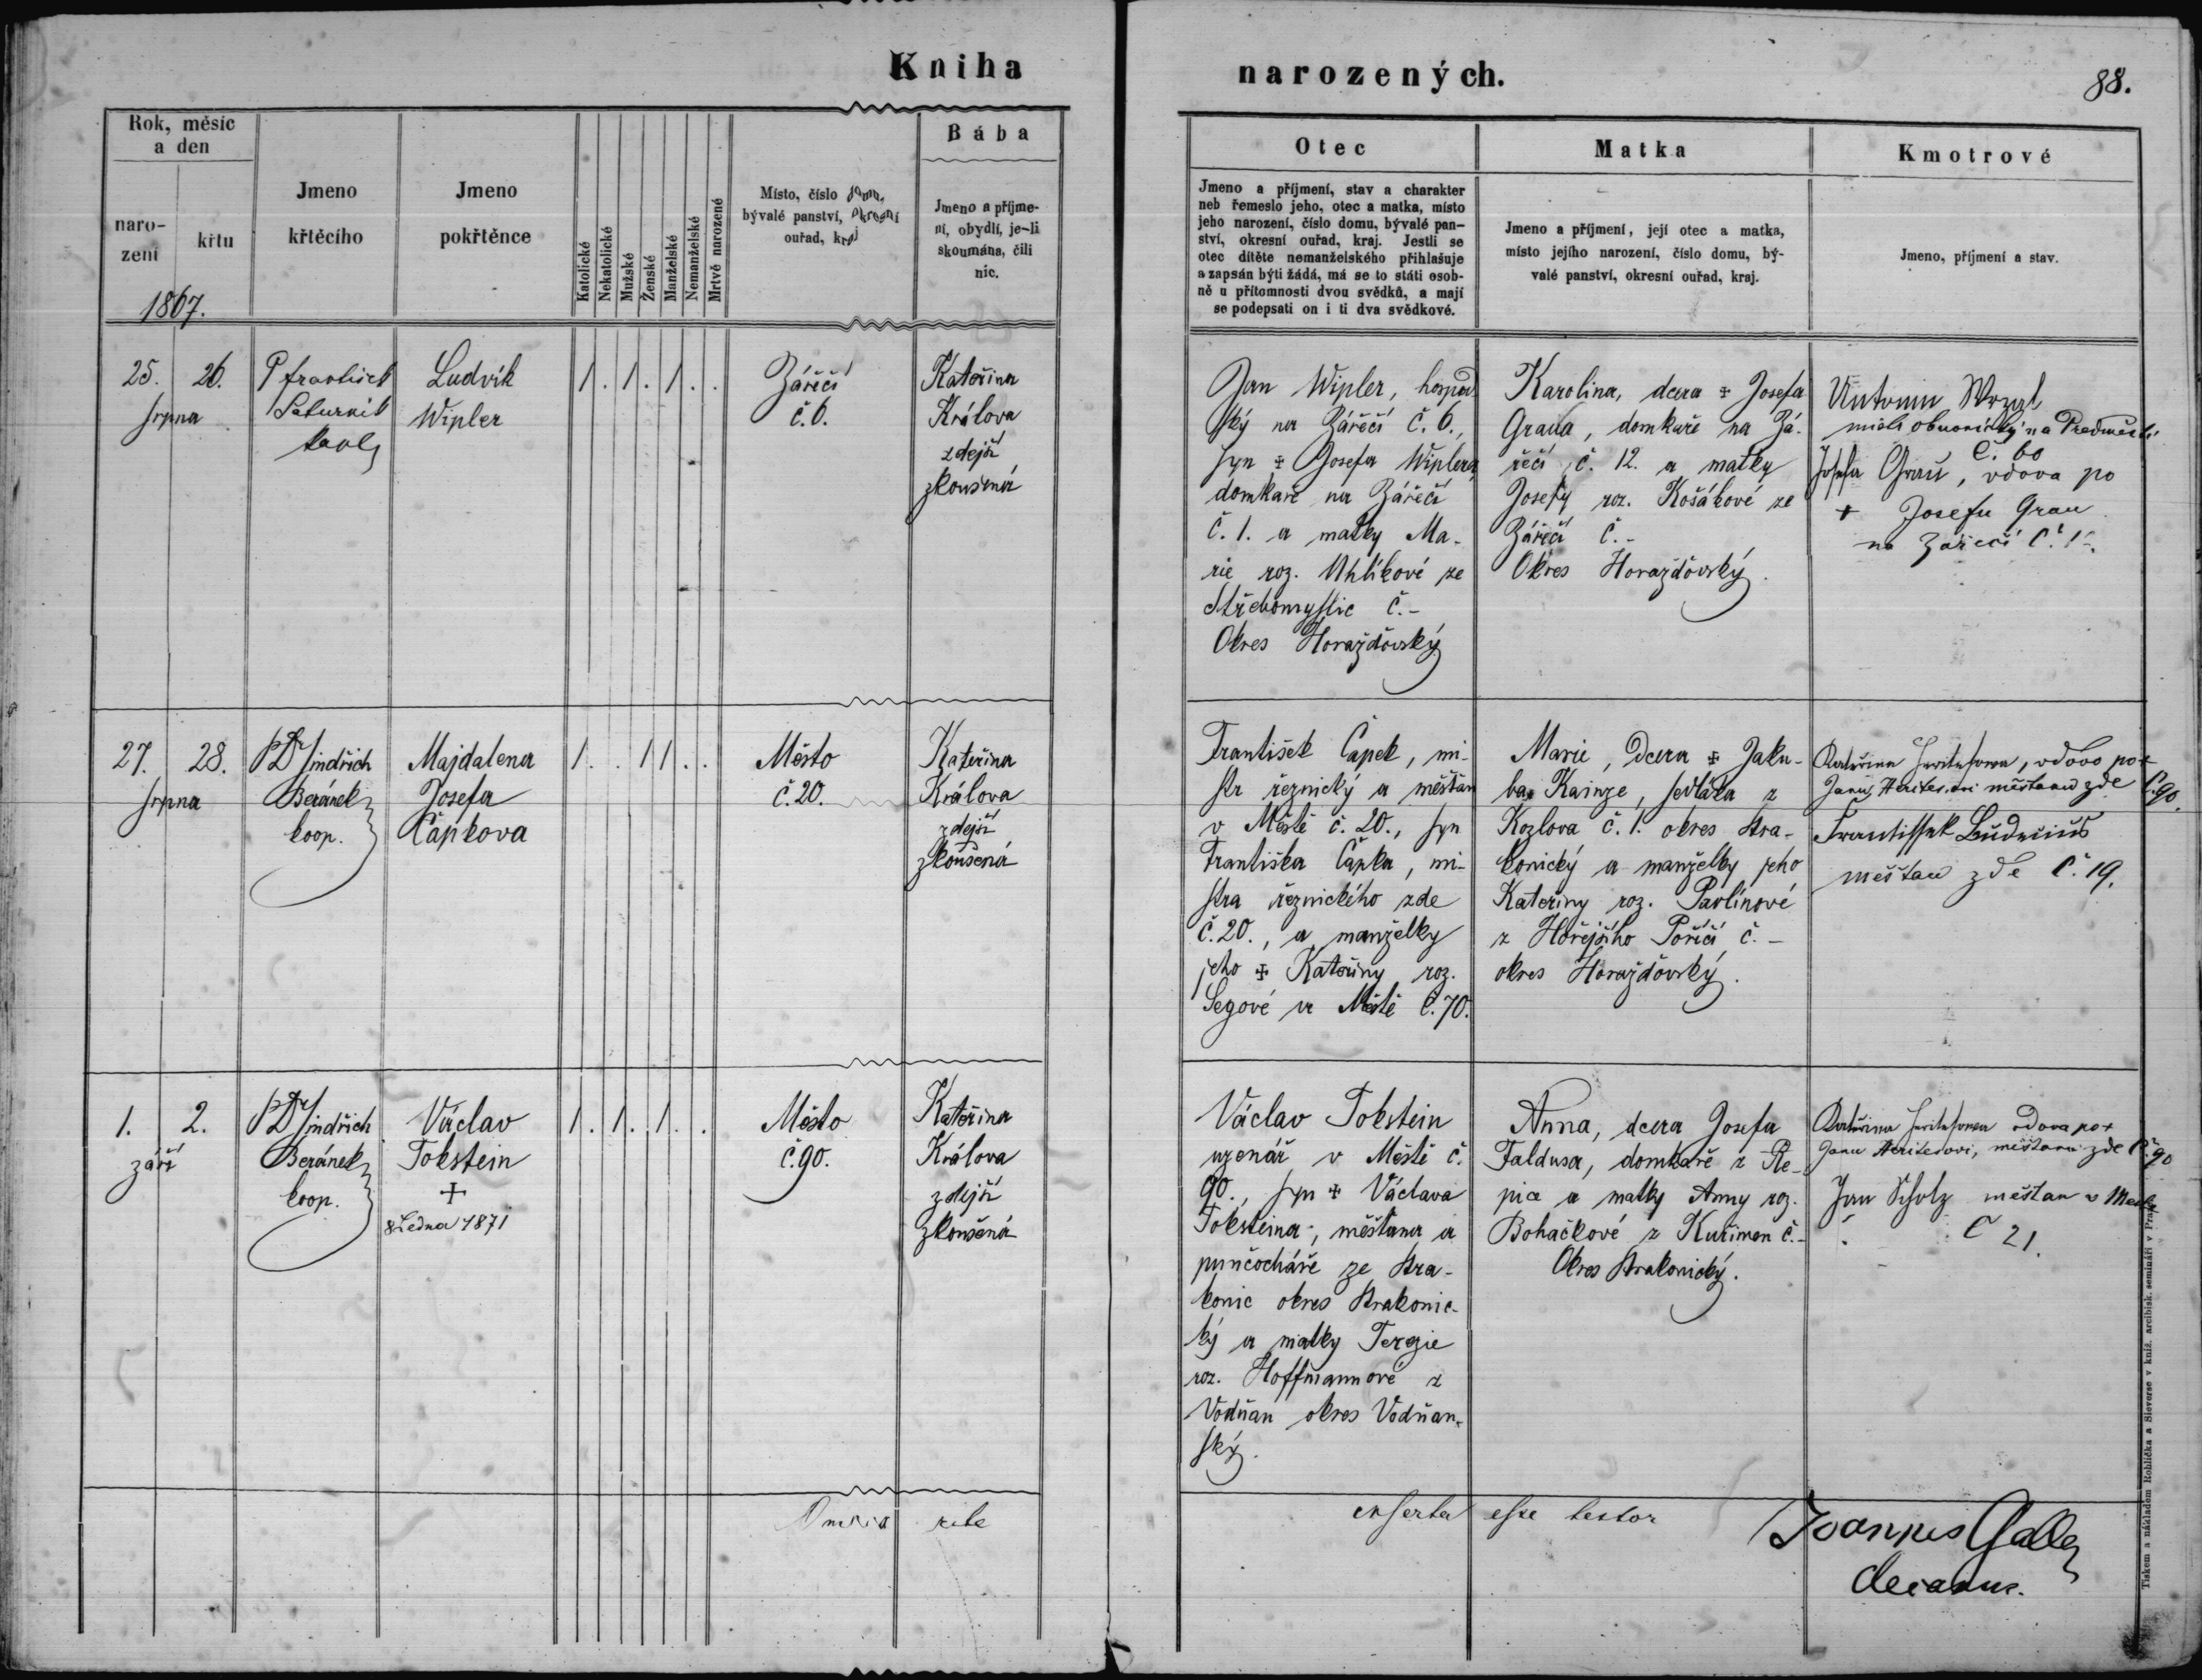 Kniha narozených.
88.
Rok, měsíc a den
narození
křtu
1867.
Jmeno křtěcího
Jmeno pokřtěnce
Katolické
Nekatolické
Mužské
Ženské
Manželské
Nemanželské
Mrtvě narozené
Místo, číslo domu,
bývalé panství, okresní
ouřad, kraj
Bába
Jmeno a příjme-
ní, obydlí, je-li
skoumána, čili
nic.
Otec
Jmeno a příjmení, stav a charakter
neb řemeslo jeho, otec a matka, místo
jeho narození, číslo domu, bývalé pan-
ství, okresní ouřad, kraj. Jestli se
otec dítěte nemanželského přihlašuje
a zapsán býti žádá, má se to státi osob-
ně u přítomnosti dvou svědků, a mají
se podepsati on i ti dva svědkové.
Matka
Jmeno a příjmení, její otec a matka,
místo jejího narození, číslo domu, bý-
valé panství, okresní ouřad, kraj.
Kmotrové
Jmeno, příjmení a stav.
25. 26.
srpna
P František
Ludvík
Wipler
1 . 1 . 1 . .
Zářečí
č. 6.
Kateřina
Králova
zdejší
zkoušená
Jan Wipler, hospod
ský na Zářečí č. 6.,
syn + Josefa Wiplera,
domkaře na Zářečí
č. 1. a matky Ma-
rie roz. Uhlíkové ze
Střebomyslic č. -
Okres Horažďovský
Karolina, dcera + Josefa
Graua, domkaře na Zá-
řečí č. 12. a matky
Josefy roz. Košákové ze
Zářečí č. -
Okres Horažďovský.
Antonin
obuvnický na Předměstí
č. 60
Josefa Grau, vdova po
+ Josefu Grau
na Zářečí č.
27. 28.
srpna
P Dr Jindřich
Beránek
koop.
Majdalena
Josefa
Čapkova
1 . . 1 1 . .
Město
č. 20.
Kateřina
Králova
zdejší
zkoušená
František Čapek, mi-
str řeznický a měšťan
v Městě č. 20., syn
Františka Čapka, mi-
stra řeznického zde
č. 20., a manželky
jeho + Kateřiny roz.
Segové v Městě č. 70.
Marie, dcera + Jaku-
ba Kainze, sedláka z
Kozlova č. 1. okres Stra-
konický a manželky jeho
Kateřiny roz. Pavlínové
z Hořejšího Poříčí č. -
okres Horažďovský.
Kateřina Heritesova, vdova po +
Janu Heritesovi měšťanu zde č. 90.
Frantissek
měšťan zde č. 19.
1. 2.
září
P Dr Jindřich
Beránek
koop.
Václav
Tokstein
+
8 Ledna 1871
1 . 1 . 1 . .
Město
č. 90.
Kateřina
Králova
zdejší
zkoušená
Václav Tokstein
uzenář v Městě č.
90., syn + Václava
Toksteina, měšťana a
punčocháře ze Stra-
konic okres Strakonic-
ký a matky Terezie
roz. Hoffmannové z
Vodňan okres Vodňan-
ský.
Anna, dcera Josefa
Faldusa, domkaře z Ře-
pice a matky Anny roz.
Bohačkové z Kuřimen č. -
Okres Strakonický.
Kateřina Heritesova vdova po +
Janu Heritesovi, měšťanu zde č. 90
Jan Scholz měšťan v Městě
č 21.
Omnia rite inserta esse testor
Joannes Galle
decanus.
Tiskem a nákladem Rohlíčka a Sieverse v kníž. arcibisk. semináři v Praze